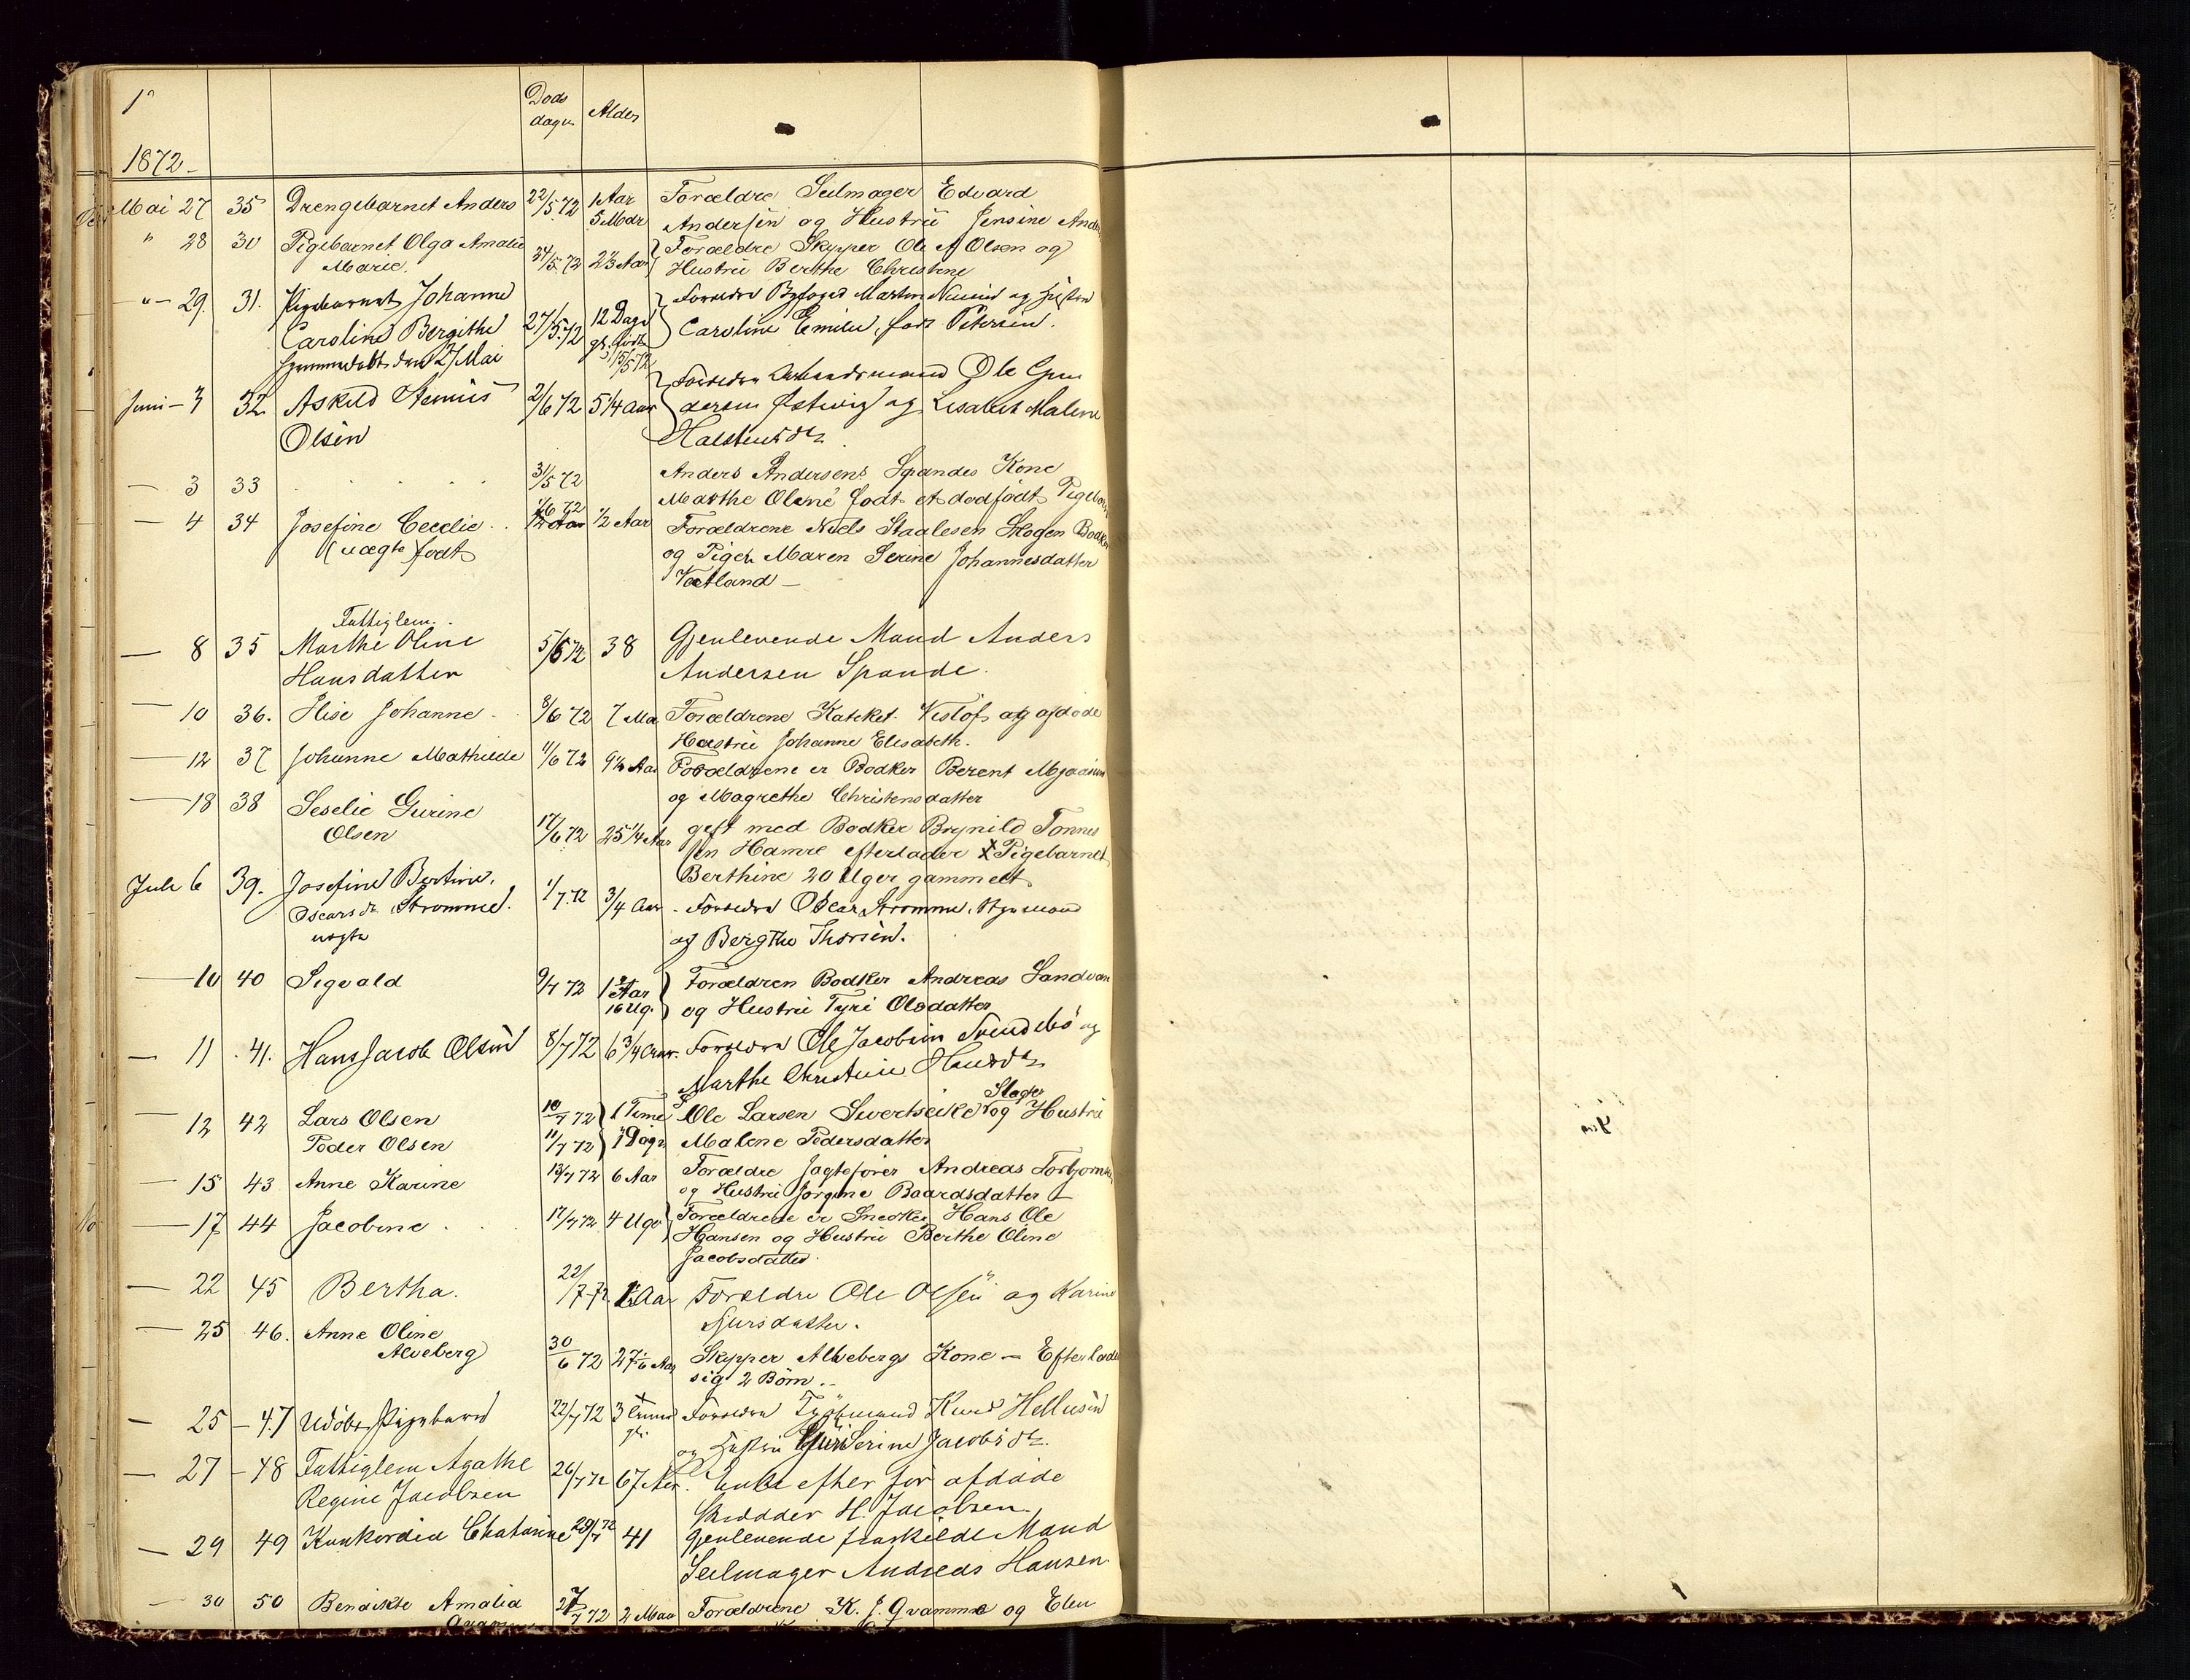 Døds Alder
dagen
1872
Mai 27 35 Drengebarnet Anders 22/5 72 1 Aar Forældre Seilmager Edvard
5 Mdr Andersen og Hustrü Jensine
" 28 30 Pigebarnet Olga Amalie Forældre Skypper Ole A Olsen og
Marie. /5 72 2½ Aar Hustrü Berthe Christine
" 29. 31. Pigebarnet Johanne Forældre Byfoged Martin og Hustru
Caroline Bergithe 27/5 72 12 Dage Caroline Emilie, født Petersen.
hjemmedøbt den 27 Mai gl. født 15/5 72
Juni 3 32 Askild Olsen 2/6 72 5 1/4 Aar Forældre Arbeidsmand Ole Gun
dersen Østevig og Lisabeth Malene
Halstensdtr
3 33 31/5 72 Anders Andersens Spandes Kone
Marthe Olene født et dødfødt
4 34 Josefine Cecelie 1/6 72 ½ Aar Forældrene Niels Staalesen Skogen
(uægte) født og Pigen Maren Serine Johannesdatter
Vatland
Fattiglem.
8 35 Marthe Oline 5/6 72 38 Gjenlevende Mand Anders
Hansdatter Andersen Spande.
10 36. Elise Johanne 8/6 72 7 Ma Forældrene Kateket og afdøde
Hustrü Johanne Elisabeth.
12 37 Johanne Mathilde 11/6 72 9½ Aar Forældrene er Bødker Berent
og Magrethe Christensdatter
18 38 Seselie Gurine
Olsen 17/6 72 25 1/4 Aar gift med Bødker Brynild Tønnes
sen Hamre efterlader 1 Pigebarnet
Berthine 20 Uger gammelt
Juli 6 39. Josefine Bertine,
Oscarsdtr Strømme. 1/7 72 3/4 Aar Forældre Oscar Strømme,
uægte og Bergthe Thorsen.
10 40 Sigvald 9/7 72 1 Aar Forældren Bødker Andreas
16 Ug. og Hustrü Tyri Olsdatter
11 41. Hans Jacob Olsen 8/7 72 6 3/4 Aar. Forældre Ole Jacobsen Svendebø og
Marthe Christine Hansdtr
Slager
12 42 Lars Olsen 10/7 72 1 Time Ole Larsen og Hustrü
Peder Olsen 11/7 72 1 Døgn Malene Pedersdatter
15 43 Anne Karine 13/7 72 6 Aar Forældre Jagtefører Andreas
og Hustrü Jørgine Baardsdatter
17 44 Jacobine 17/7 72 4 Uger Forældrene er Snedker Hans Ole
Hansen og Hustrü Berthe Oline
Jacobsdatter
22 45 Bertha. 22/7 72 Aar Forældre Ole Olsen og Karine
Sjursdatter.
25 46. Anne Oline
Alveberg 30/6 72 27 Aar Skypper Alvebergs Kone – Efterlader
sig 2 Børn.
25 47 Udøbt Pigebarn 22/7 72 3 Timer Forældre Knud Hellesen
gl. og Hustru Serine Jacobsdtr.
27 48 Fattiglem Agathe 26/7 72 67 Aar. Enke efter for afdøde
Regine Jacobsen Skrædder H. Jacobsen.
29 49 Konkordia Chatarine 29/7 72 41 gjenlevende fraskildt Mand
Seilmager Andreas Hansen
30 50 Bendikte Amalia /7 72 2 Maan Forældrene K. J. Qvamme og Elen